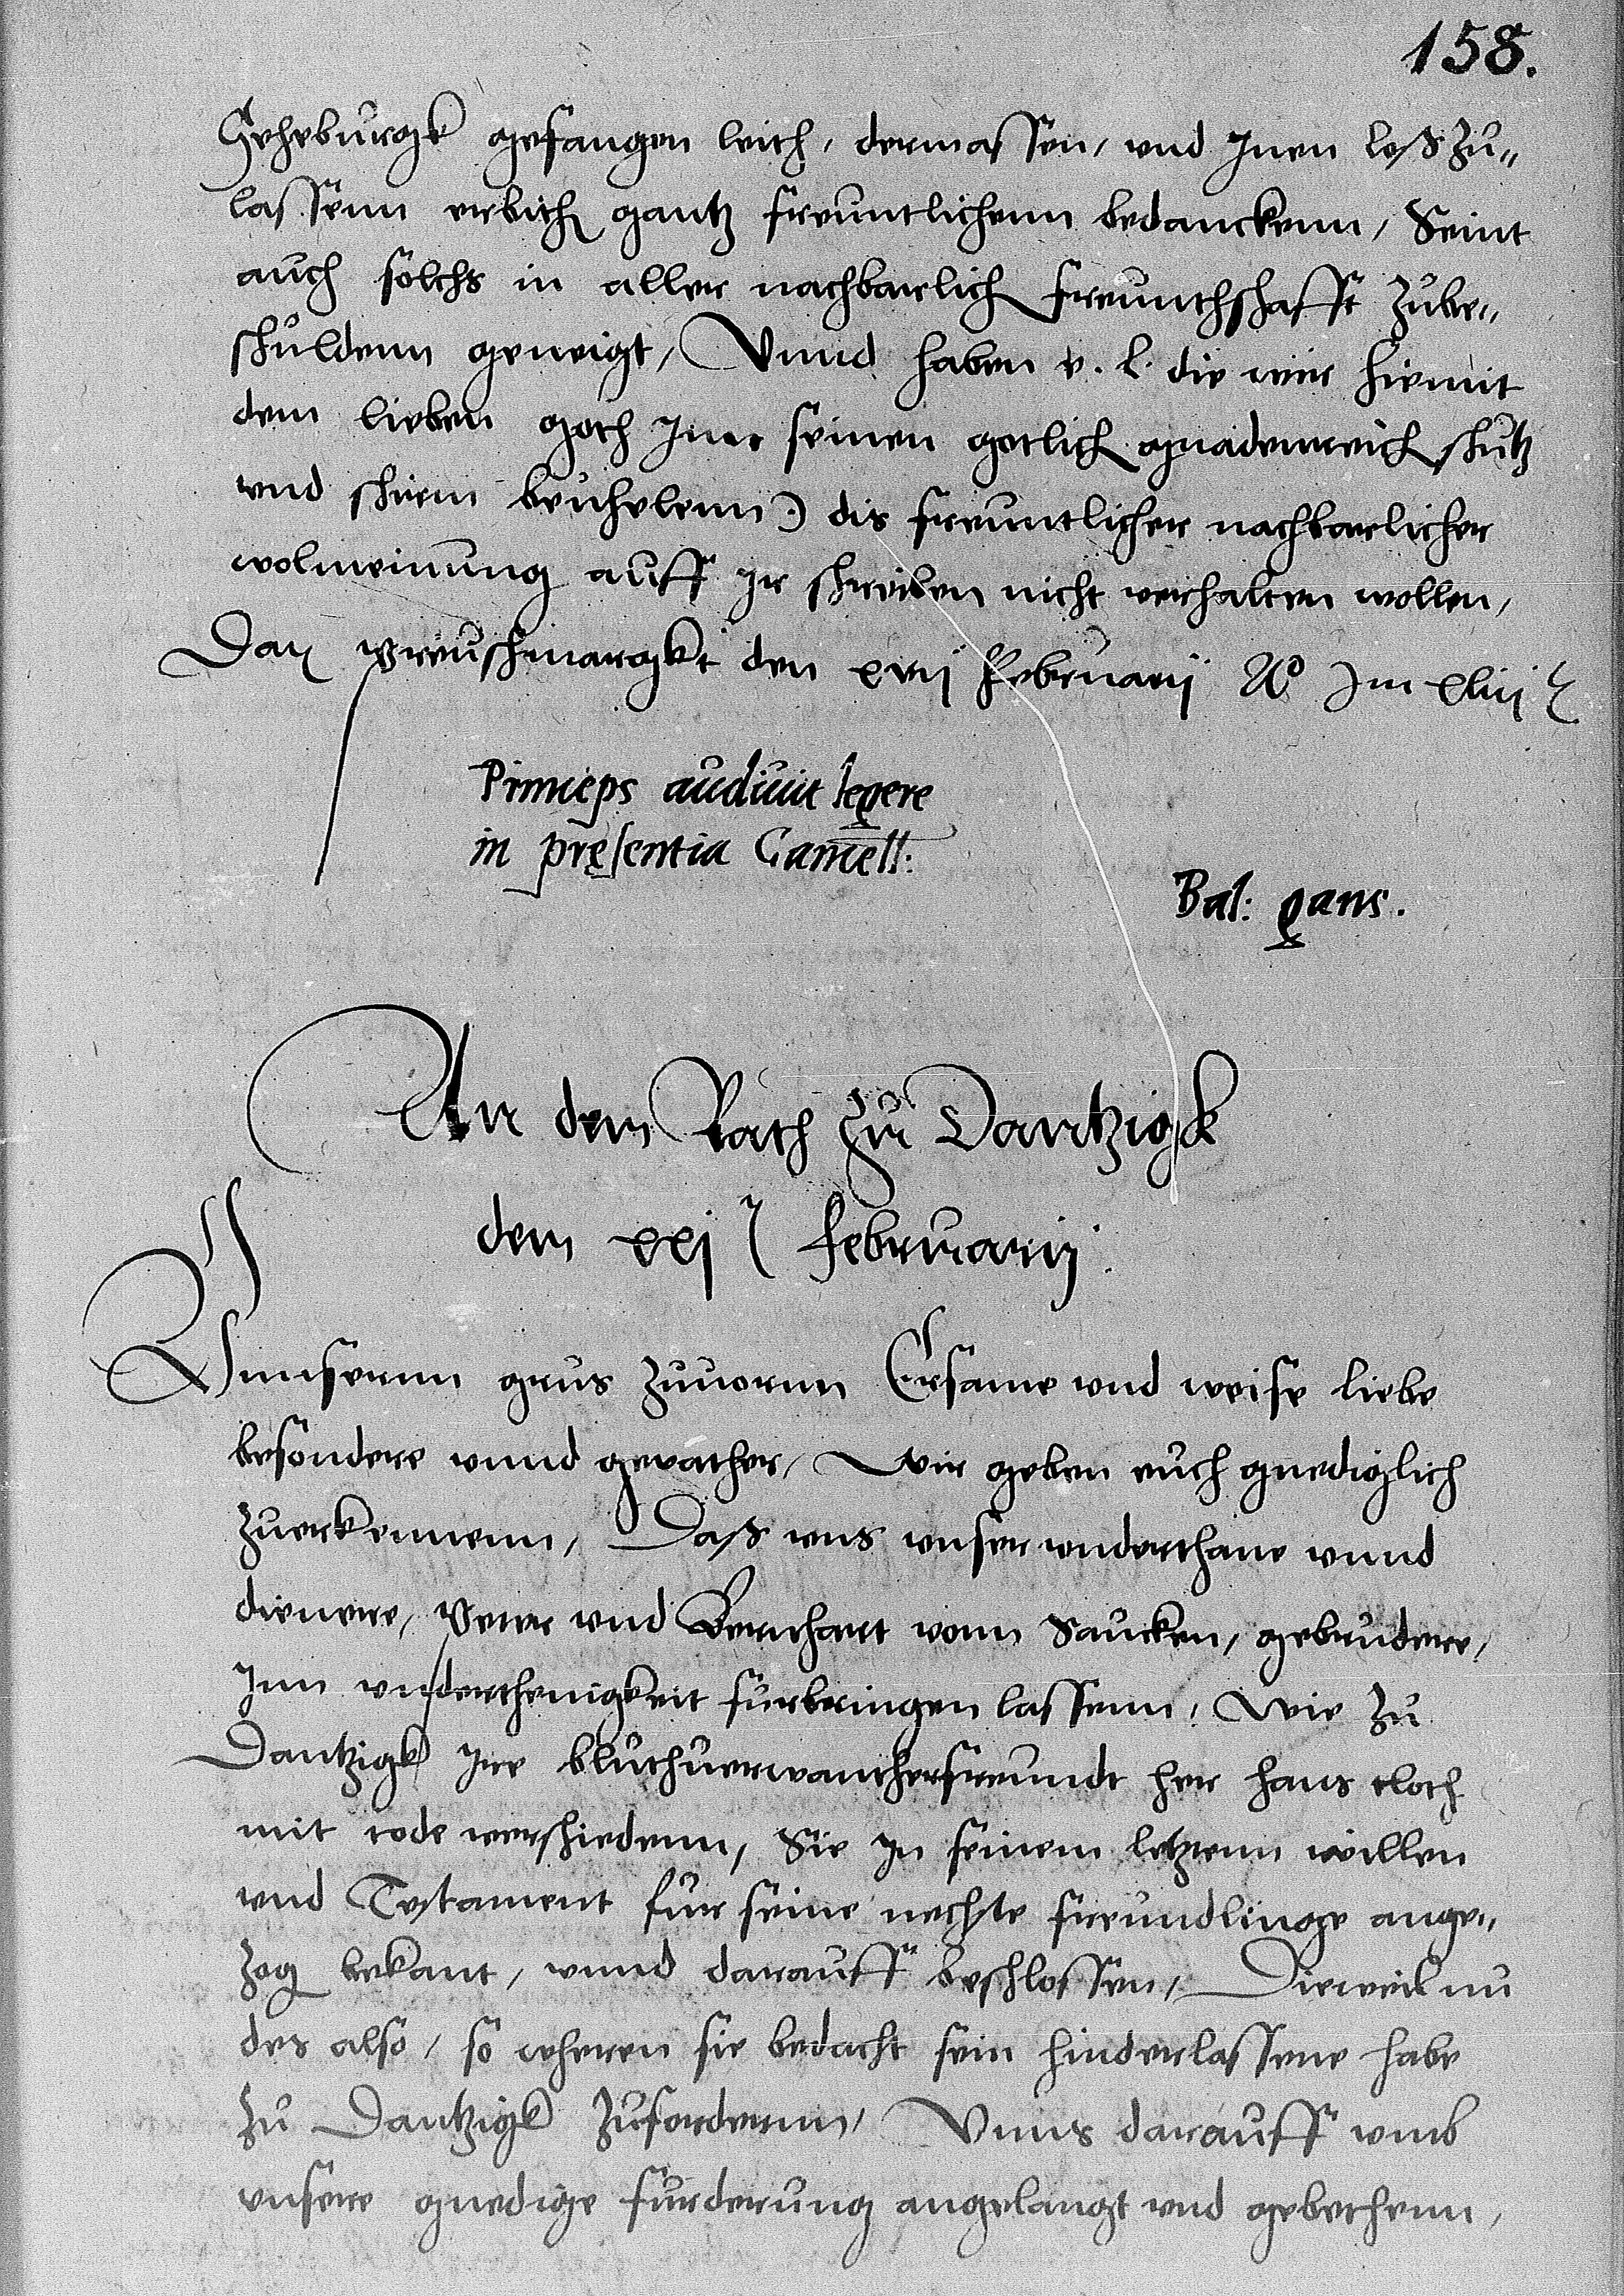 158.
Seheburgk gefangen leith, dermassen, vnd Inen loß zu„
lassenn erbith gantz freuntlichenn bedanckenn, Seint
auch solchs in aller nachbarlich freunthschafft zube„
schuldenn geneigt, Vnnd haben e. l. die wir hiemit
dem lieben goth Inn seinen gotlich gnadenreich schutz
vnd schirm beuhelenn) dis freuntlicher nachbarlicher
wolmeinung auff Ir schreiben nicht verhalten wollen,
Dat preuschmargkt den xvij Februarij A° Im xliij
Princeps audiuit legere
in presentia Cancell:
Bal: gans.
An den Rath zu Dantzigk
den xxj februarij.
Vnnsernn grus zuuornn Ersame vnd weise liebe
besondere vnnd geuather, Wir geben euch gnediglich
zuerkennenn, Daß vns vnser vnderthane vnnd
dienere, Peter vnd Bernhart vonn Saucken, gebrudere,
Inn vnderthenigkeit furbringen lassenn, Wie zu
Dantzigk Ire bluthuerwantherfreundt her hans cloth
mit tode verschiedenn, Sie In seinem letzenn willen
vnd Testament fur seine nechste freundlinge ange„
zog bekant, vnnd darauff beschlossen, Dieweil nu
des also, so wheren sie bedacht sein hinderlassene habe
zu Dantzigk zufordernn, Vnns darauff vmb
vnsere gnedige furderung angelangt vnd gebethenn,